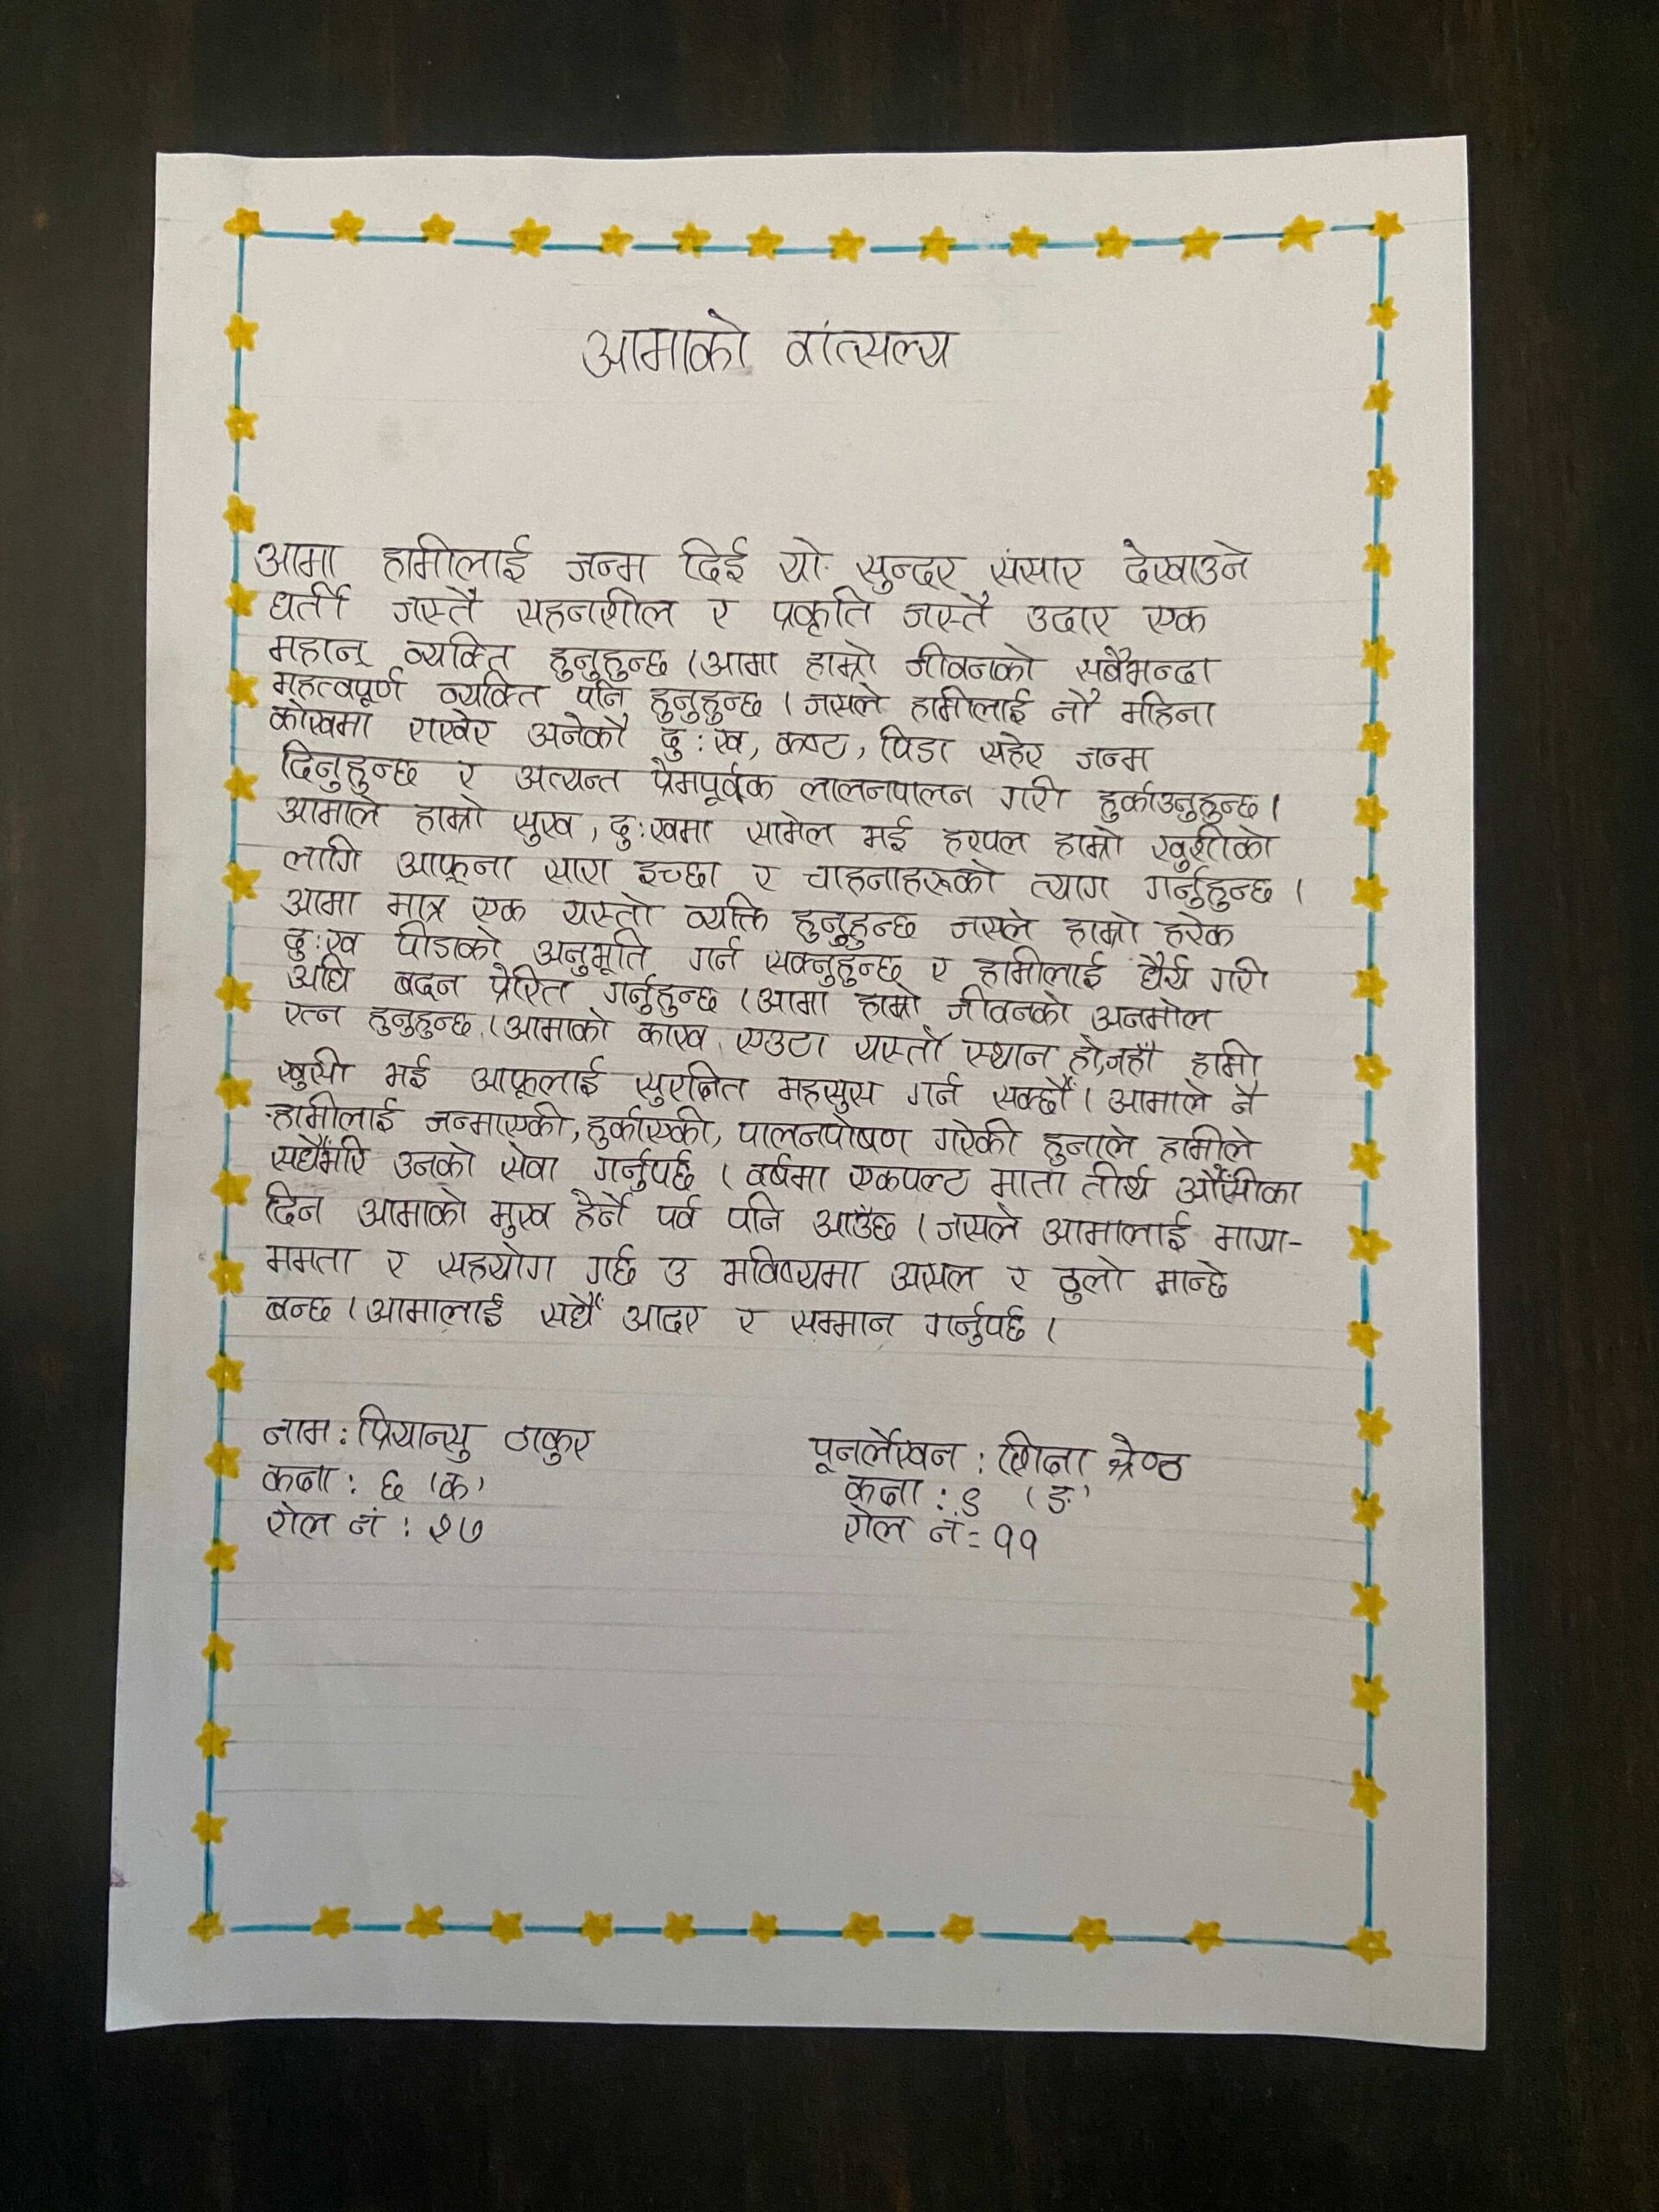 आमाको वात्सल्य
आमा हामीलाई जन्म दिई यो सुन्दर संसार देखाउने
धर्ती जस्तै सहनशील र प्रकृति जस्तै उदार एक
महान् व्यक्ति हुनुहुन्छ । आमा हाम्रो जीवनको सबैभन्दा
महत्वपूर्ण व्यक्ति पनि हुनुहुन्छ । जसले हामीलाई नौ महिना
कोखमा राखेर अनेकौ दु:ख, कष्ट, पिडा सहेर जन्म
दिनुहुन्छ र अत्यन्त प्रेमपूर्वक लालनपालन गरी हुर्काउनुहुन्छ ।
आमाले हाम्रो सुख, दु:खमा सामेल भई हरपल हाम्रो खुशीको
लागि आफ्ना सारा इच्छा र चाहनाहरूको त्याग गर्नुहुन्छ ।
आमा मात्र एक यस्तो व्यक्ति हुनुहुन्छ जसले हाम्रो हरेक
दु:ख पीडाको अनुभूति गर्न सक्नुहुन्छ र हामीलाई धैर्य गरी
अघि बढ्न प्रेरित गर्नुहुन्छ । आमा हाम्रो जीवनको अनमोल
रत्न हुनुहुन्छ । आमाको काख एउटा यस्तो स्थान हो,जहाँ हामी
खुसी भई आफूलाई सुरक्षित महसुस गर्न सक्छौँ । आमाले नै
हामीलाई जन्माएकी, हुर्काएकी, पालनपोषण गरेकी हुनाले हामीले
सधैँभरि उनको सेवा गर्नुपर्छ । वर्षमा एकपल्ट माता तीर्थ औँसीका
दिन आमाको मुख हेर्ने पर्व पनि आउँछ । जसले आमालाई माया-
ममता र सहयोग गर्छ उ भविष्यमा असल र ठुलो मान्छे
बन्छ । आमालाई सधैँ आदर र सम्मान गर्नुपर्छ ।
नाम : प्रियान्सु ठाकुर
कक्षा : ६ 'क'
रोल नं : २७
पूनर्लेखन : श्रेष्ठ
कक्षा : ९ 'ङ'
रोल नं = ११